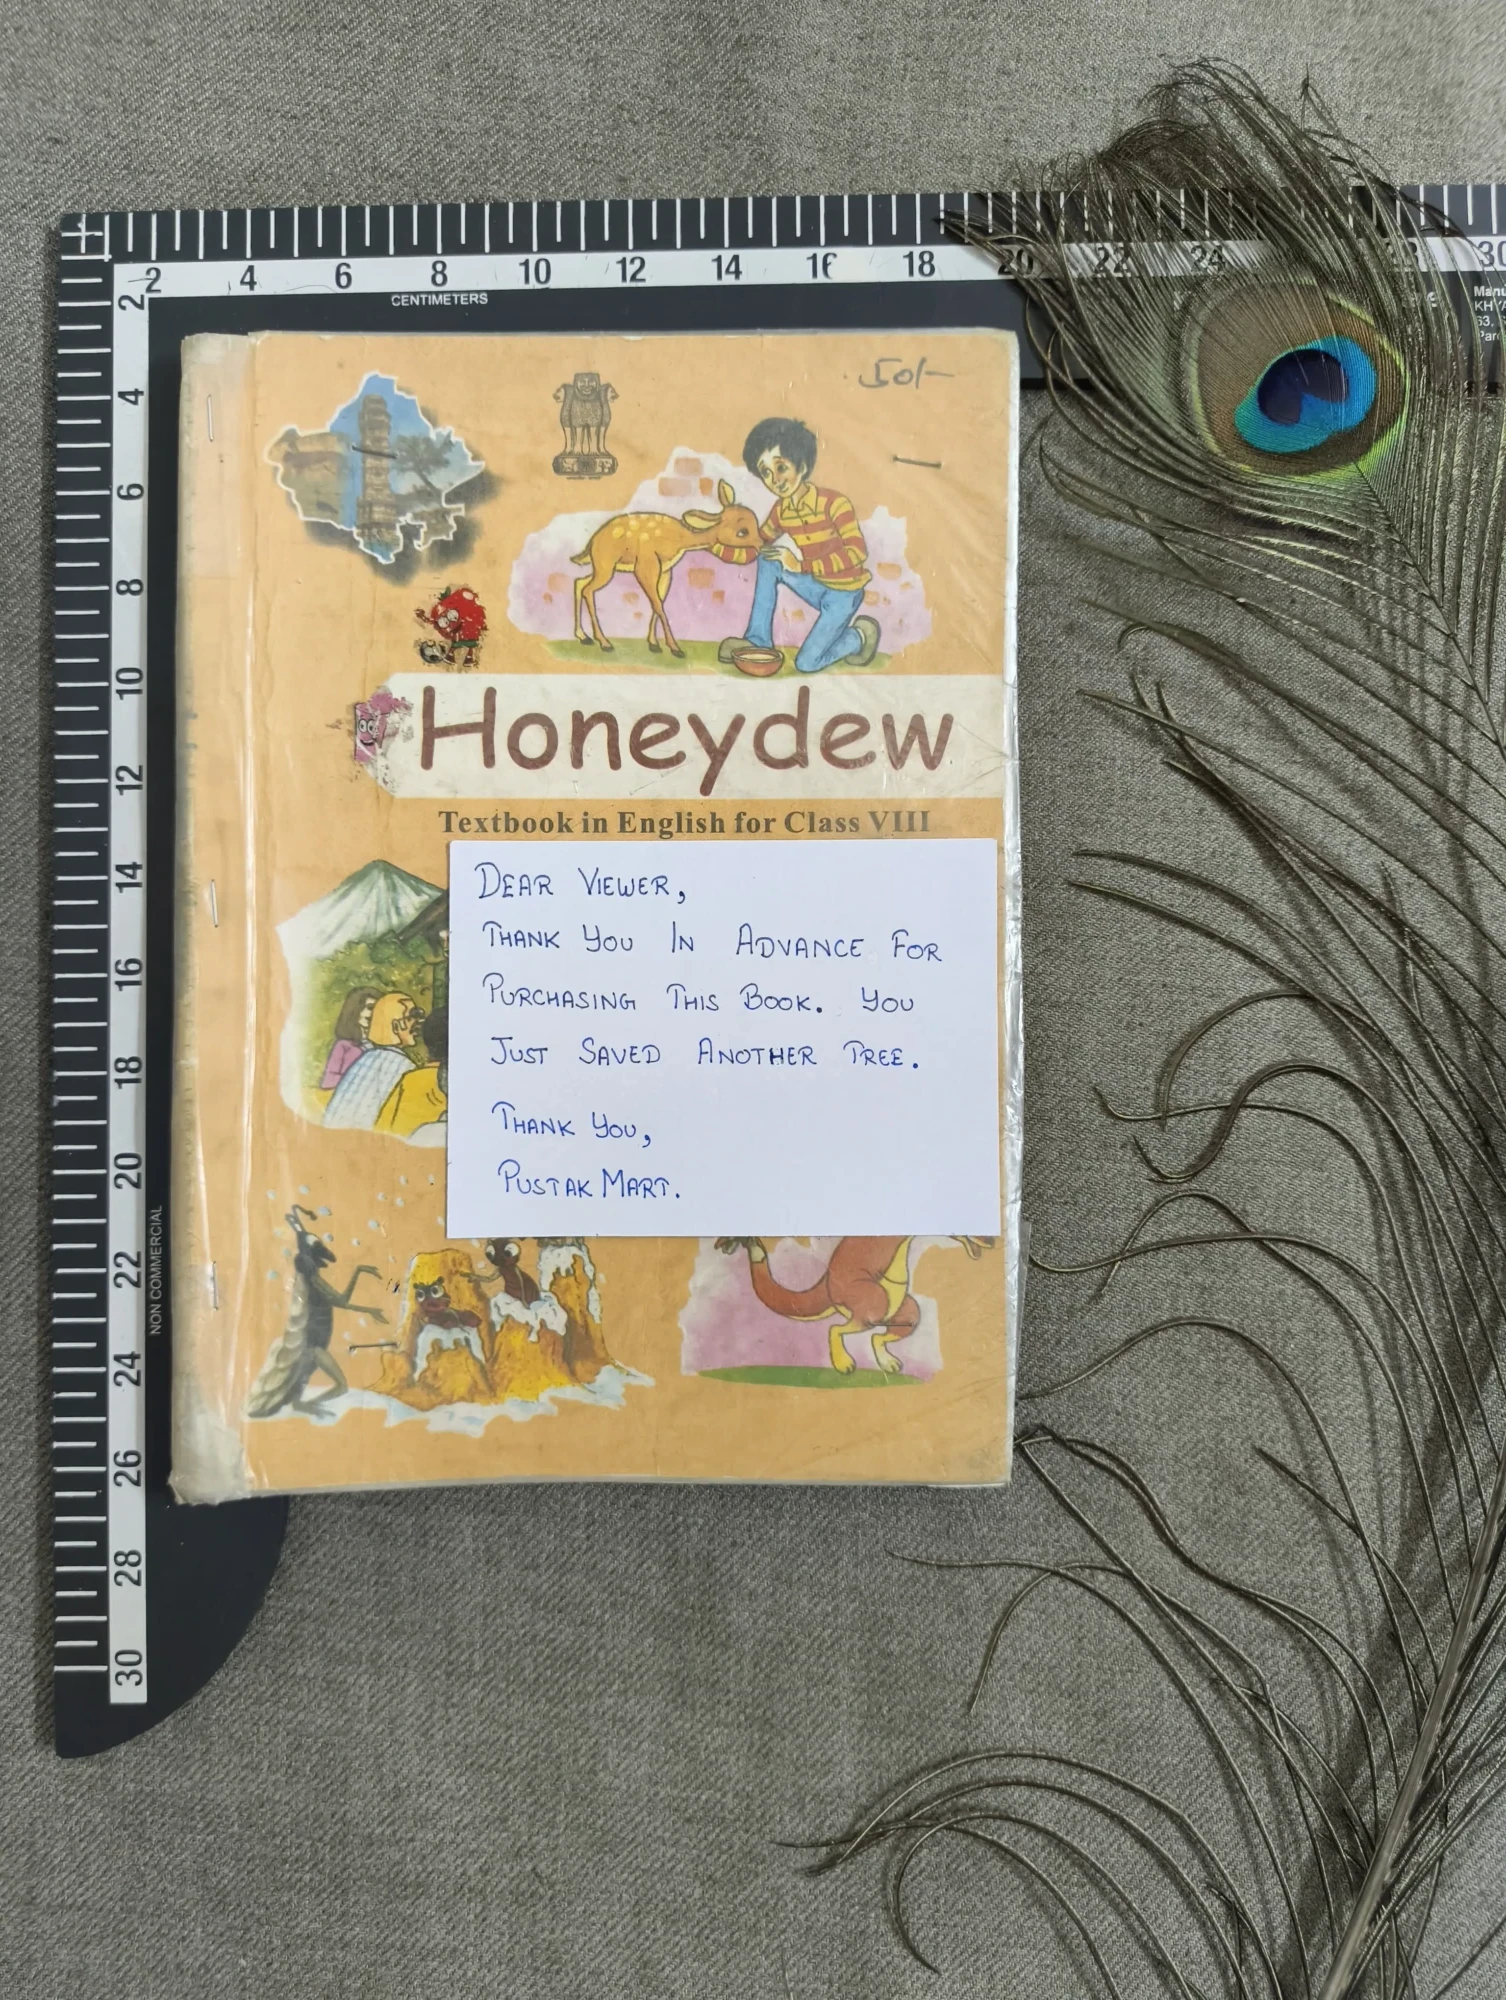 2 4 6 8 10 12 14 16 18 20 22 24 28 30
CENTIMETERS
2
4
6
8
10
12
14
16
18
20
22
24
26
28
30
NON COMMERCIAL
50/-
Honeydew
Textbook in English for Class VIII
DEAR VIEWER,
THANK YOU IN ADVANCE FOR
PURCHASING THIS BOOK. YOU
JUST SAVED ANOTHER TREE.
THANK YOU,
PUSTAK MART.